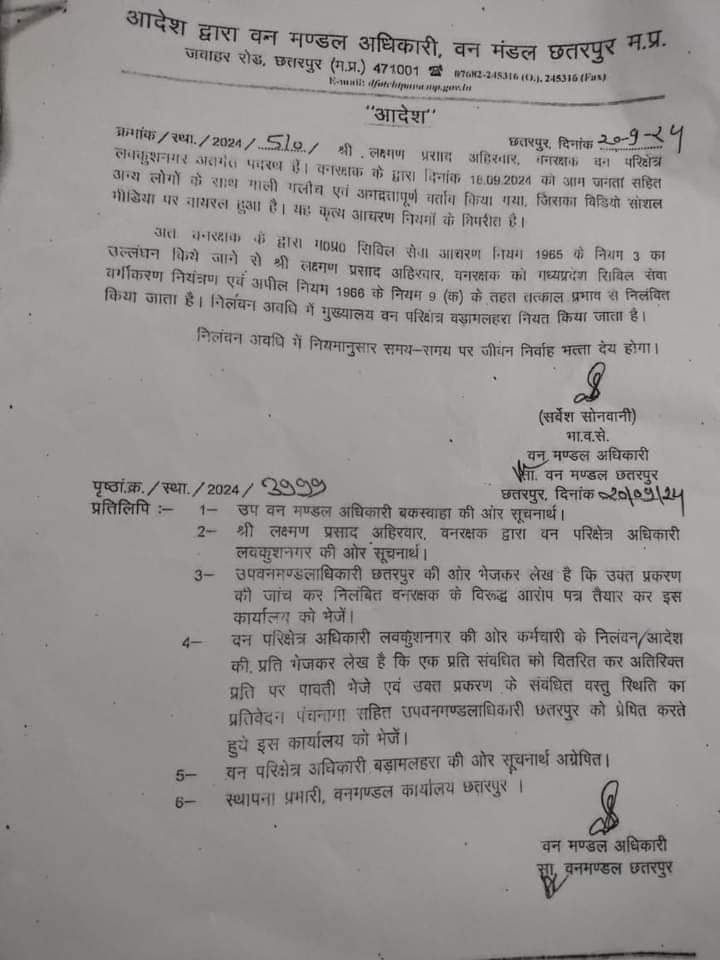 आदेश द्वारा वन मण्डल अधिकारी, वन मंडल छतरपुर म.प्र.
जवाहर रोड, छतरपुर (म.प्र.) 471001 ☎ 07682-245316 (O.), 245316 (Fax)
E-mail: dfotchtpur@mp.gov.in
"आदेश"
क्रमांक/स्था./2024/510/ छतरपुर, दिनांक 20-9-24
श्री लक्ष्मण प्रसाद अहिरवार, वनरक्षक वन परिक्षेत्र
लवकुशनगर अतर्गत पदस्थ है। वनरक्षक के द्वारा दिनांक 18.09.2024 को आम जनता सहित
अन्य लोगों के साथ गाली गलौच एवं अभद्रतापूर्ण वर्ताव किया गया, जिसका विडियो सोशल
मीडिया पर वायरल हुआ है। यह कृत्य आचरण नियमों के विपरीत है।
अतः वनरक्षक के द्वारा म0प्र0 सिविल सेवा आचरण नियम 1965 के नियम 3 का
उल्लंघन किये जाने से श्री लक्ष्मण प्रसाद अहिरवार, वनरक्षक को मध्यप्रदेश सिविल सेवा
वर्गीकरण नियंत्रण एवं अपील नियम 1966 के नियम 9 (क) के तहत तत्काल प्रभाव से निलंबित
किया जाता है। निलंबन अवधि में मुख्यालय वन परिक्षेत्र बड़ामलहरा नियत किया जाता है।
निलंबन अवधि में नियमानुसार समय-समय पर जीवन निर्वाह भत्ता देय होगा।
(सर्वेश सोनवानी)
भा.व.से.
वन मण्डल अधिकारी
सा. वन मण्डल छतरपुर
पृष्ठां.क्र./स्था./2024/ 3999 छतरपुर, दिनांक 20/09/24
प्रतिलिपि :- 1- उप वन मण्डल अधिकारी बकस्वाहा की ओर सूचनार्थ।
2- श्री लक्ष्मण प्रसाद अहिरवार, वनरक्षक द्वारा वन परिक्षेत्र अधिकारी
लवकुशनगर की ओर सूचनार्थ।
3- उपवनमण्डलाधिकारी छतरपुर की ओर भेजकर लेख है कि उक्त प्रकरण
की जांच कर निलंबित वनरक्षक के विरूद्ध आरोप पत्र तैयार कर इस
कार्यालय को भेजें।
4- वन परिक्षेत्र अधिकारी लवकुशनगर की ओर कर्मचारी के निलंवन/आदेश
की प्रति भेजकर लेख है कि एक प्रति संवधित को वितरित कर अतिरिक्त
प्रति पर पावती भेजे एवं उक्त प्रकरण के संबंधित वस्तु स्थिति का
प्रतिवेदन पंचनामा सहित उपवनमण्डलाधिकारी छतरपुर को प्रेषित करते
हुये इस कार्यालय को भेजें।
5- वन परिक्षेत्र अधिकारी बड़ामलहरा की ओर सूचनार्थ अग्रेषित।
6- स्थापना प्रभारी, वनमण्डल कार्यालय छतरपुर ।
वन मण्डल अधिकारी
सा. वनमण्डल छतरपुर